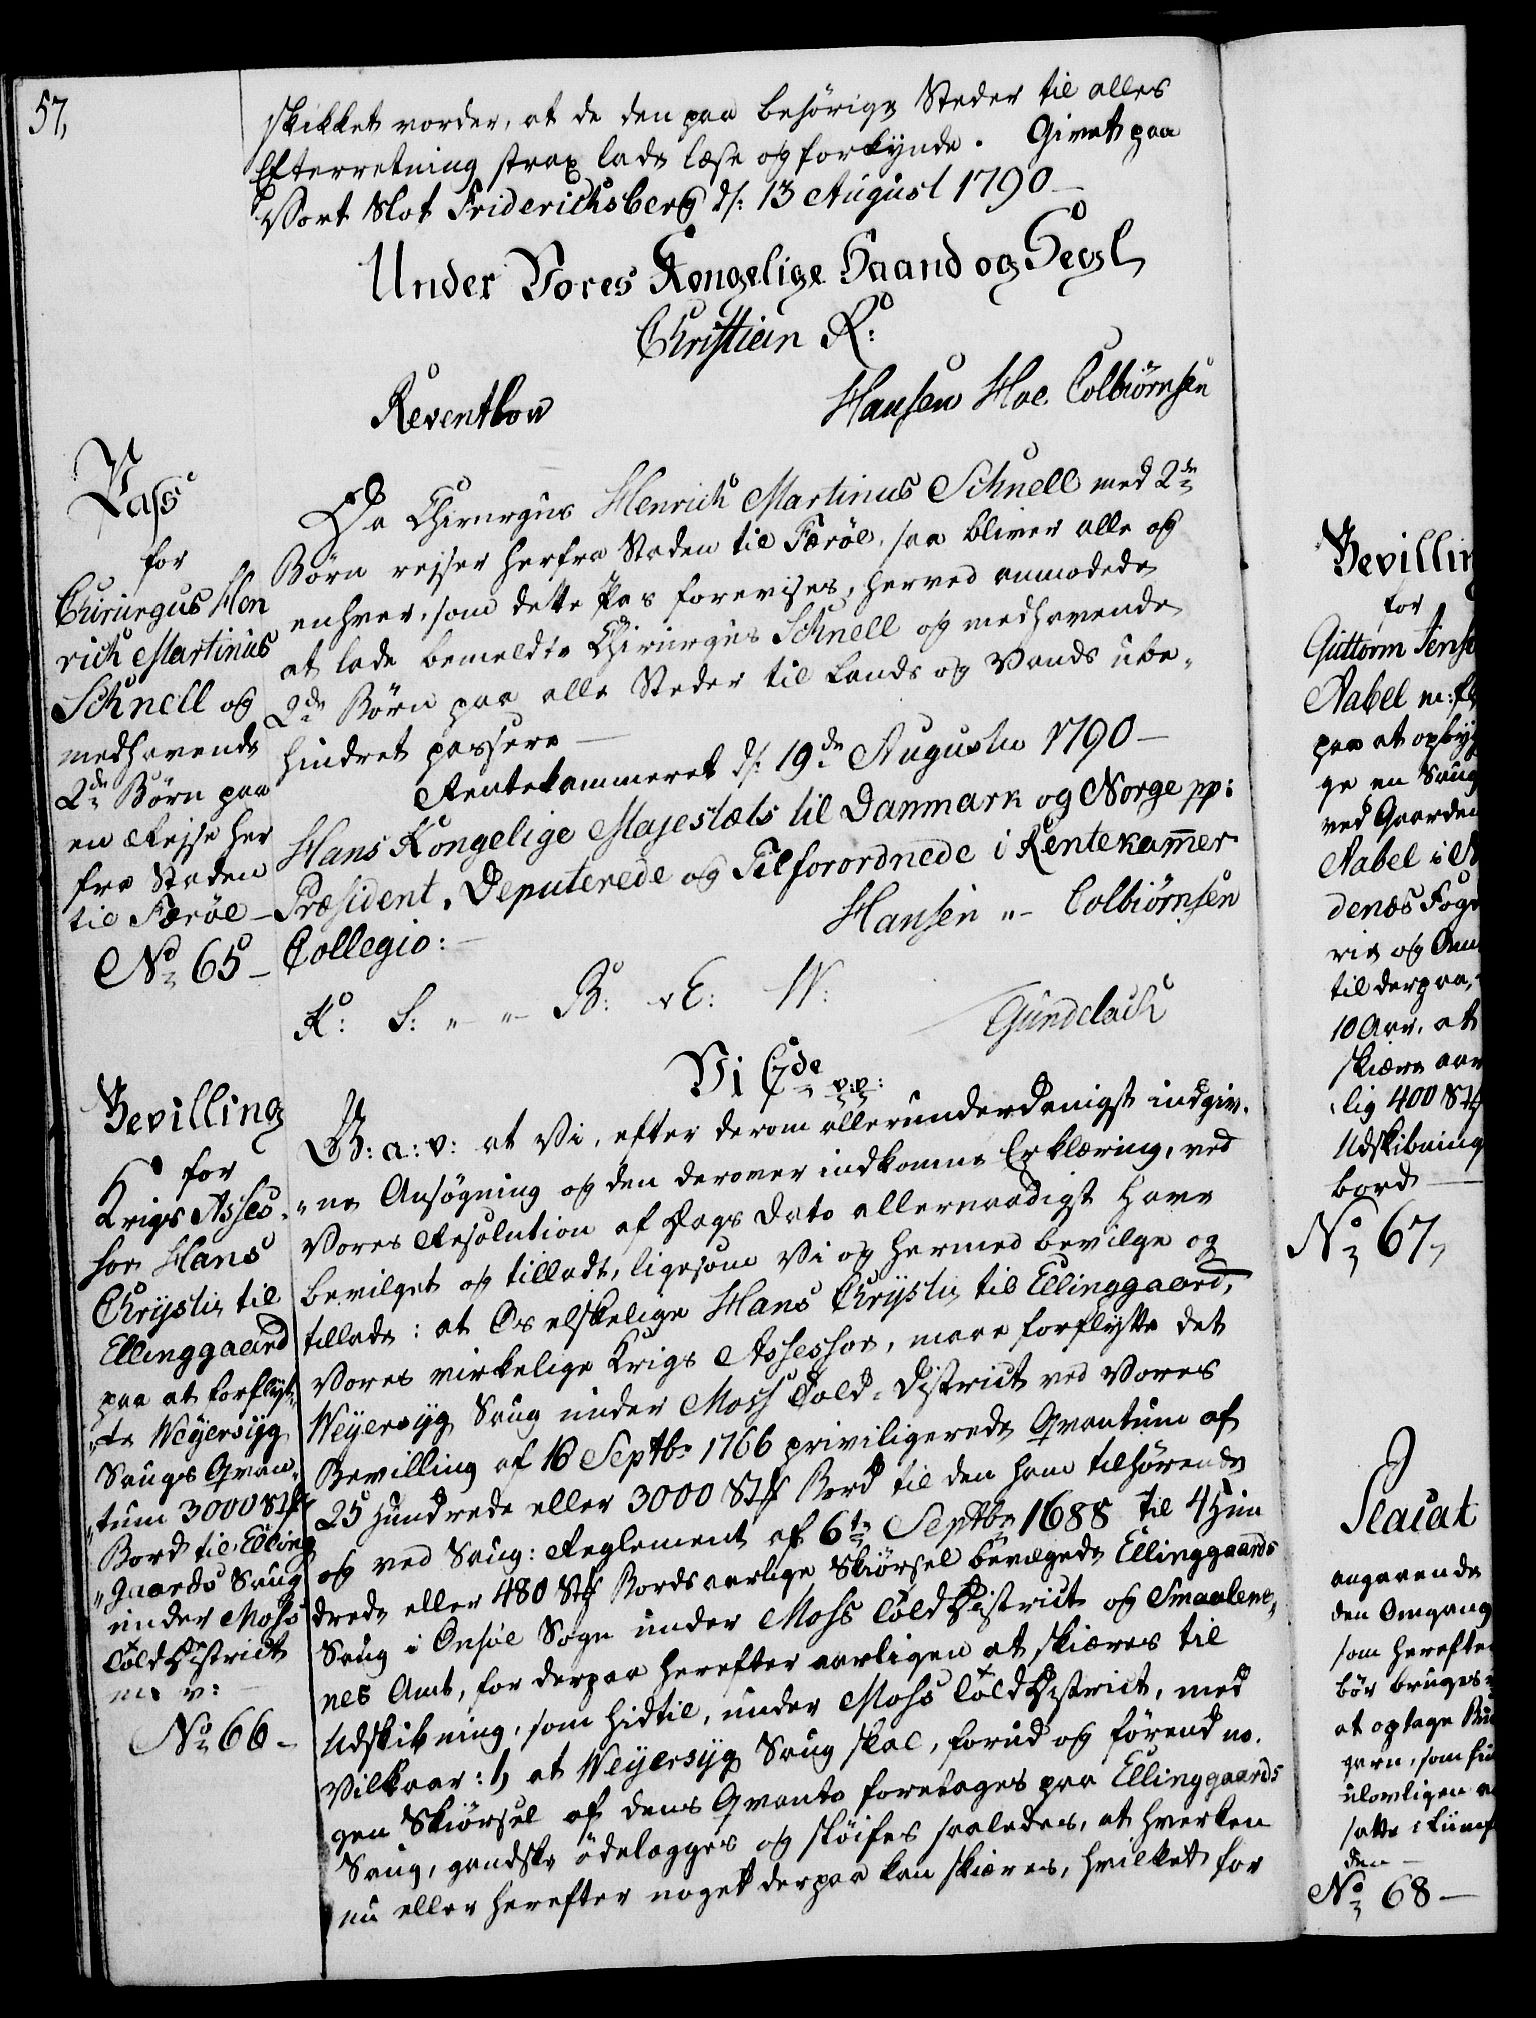 57,
skikket vorder, at de den paa behörige Steder til alles
Efterretning strax lade læse og forkynde. Givet paa
Vort Slot Friderichsberg d: 13 August 1790 —
Under Vores Kongelige Haand og Segl
Christian R:
Reventlow
Hansen Hoe Colbiörnsen
Pass
for
Chirurgus Hen
rich Martinus
Schnell og
medhavende
2de Börn paa
en Rejse her
fra Staden
til Færöe —
No 65 —
Da Chirurgus Henrich Martinus Schnell med 2de
Börn rejser herfra Staden til Færöe, saa bliver alle og
enhver, som dette Pas forevises, herved anmodede
at lade bemeldte Chirurgus Schnell og medhavende
2de Börn paa alle Steder til Lands og Vands ube-
hindret passere —
Rentekammeret d: 19de Augusti 1790 —
Hans Kongelige Majestæts til Danmark og Norge pp:
Præsident, Deputerede og Tilforordnede i Rentekam̄er
Collegio: —
Hansen „ — Colbiörnsen
K: S: „ — „ — B: v E: W:
Gündelach
Bevilling
for
Krigs Asses-
sor Hans
Chrystie til
Ellinggaard
paa at forflyt-
„te Weyersyg
Saugs Qvan-
„tum 3000 Stk
Bord til Elling
„gaards Saug
under Moss
Told District
m: v: —
No 66 —
Vi C 7de v:p:
G: a: v: at Vi, efter derom allerunderdanigst indgiv-
„ne Ansögning og den derover indkomne Erklæring, ved
Vores Resolution af Dags Dato allernaadigst have
bevilget og tilladt, ligesom Vi og hermed bevilge og
tillade: at Os elskelige Hans Chrystie til Ellinggaard,
Vores virkelige Krigs Assessor, maae forflytte det
Weyersyg Saug under Moss Told-District ved Vores
Bevilling af 18 Septbr 1766 priviligerede Qvantum af
25 Hundrede eller 3000 Stk Bord til den ham tilhörende
og ved Saug: Reglement af 6te Septbr 1688 til 4 Hun
drede eller 480 Stk Bords aarlige Skiörsel bevægede Ellinggaards
Saug i Onsöe Sogn under Moss Told District og Smaalene-
nes Amt, for derpaa herefter aarligen at skiæres til
Udskibning, som hidtil, under Moss Told District, med
Vilkaar: 1, at Weyersyg Saug skal, forud og förend no-
gen Skiörsel af dens Qvanto foretages paa Ellinggaards
Saug, gandske ödelægges og slöifes saaledes, at hverken
nu eller herefter noget derpaa kan skiæres, hvilket for
Bevillin
for
Guttorm Jens
Aabel m: fl
paa at opbyg
ge en Saug
ved Gaarden
Aabel i
denæs Fog
rie og Am
til derpaa,
10 Aar, at
skiære aar
lig 400 Stk
Udskibning
bord —
No 67,
Placat
angaaende
den Omgang
som herefter
bör bruges
at optage
garn, som
ulovligen
satte i Liimf
den —
No 68 —